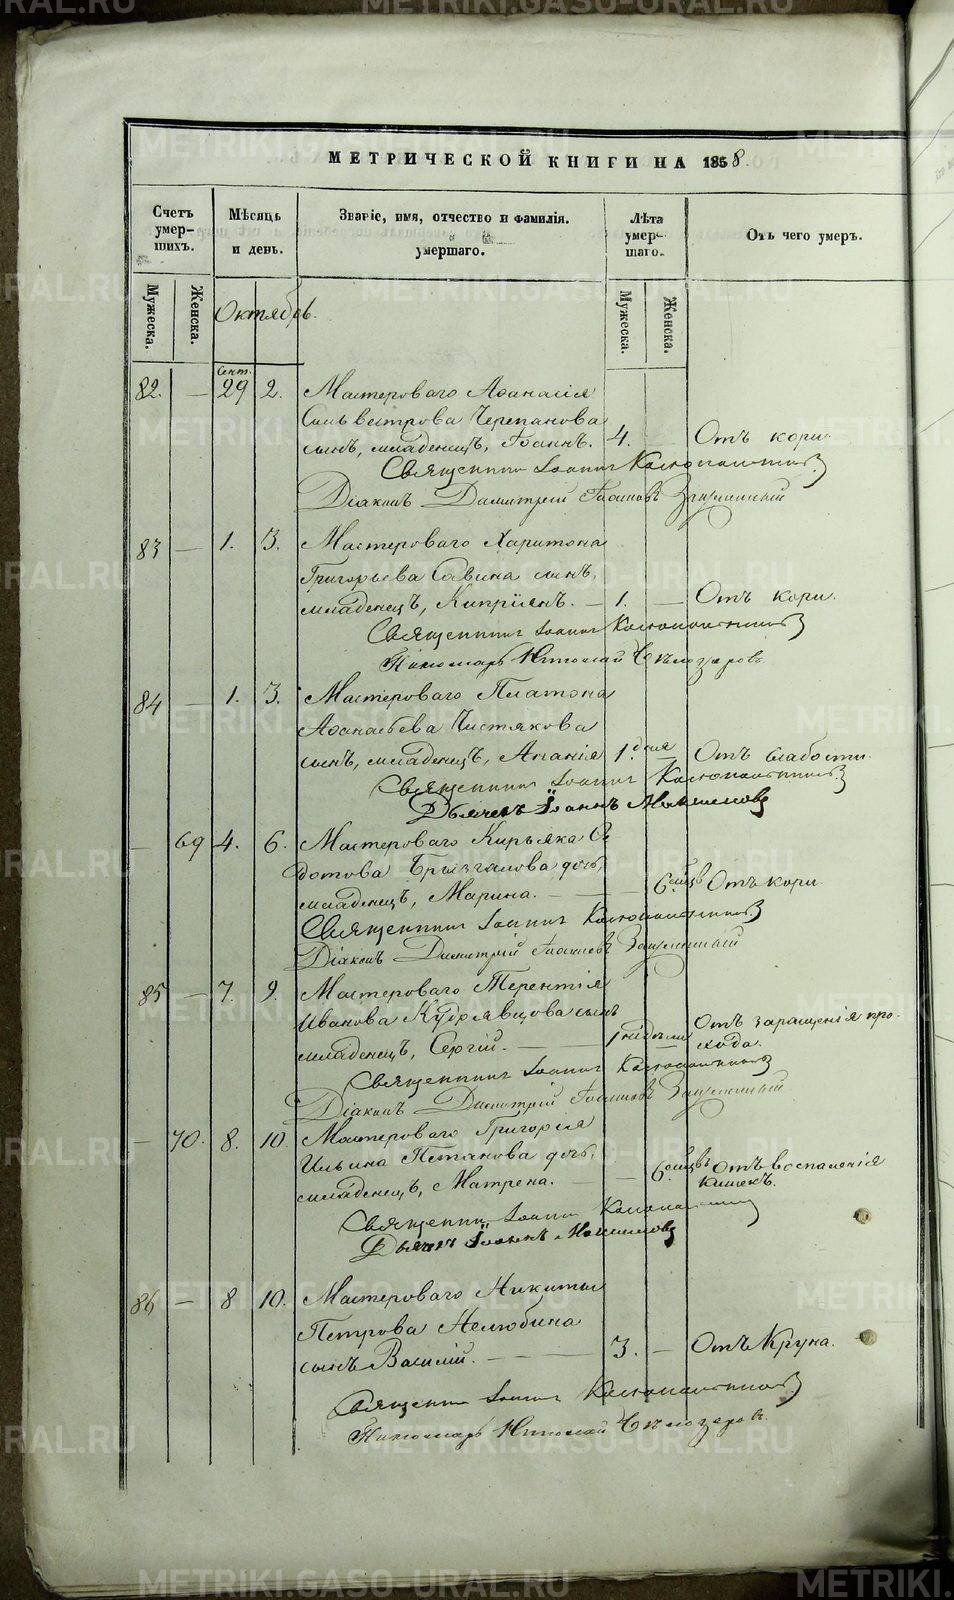 МЕТРИЧЕСКОЙ КНИГИ НА 1858.
Счетъ умер-шихъ.
Мѣсяцъ и день.
Званіе, имя, отчество и фамилія. умершаго.
Лѣта умер-шаго.
Отъ чего умеръ.
Мужеска. Женска.
Октябрь.
Мужеска. Женска.
Сент.
82. — 29 2. Мастероваго Аѳанасія
Сильвестрова Черепанова
сынъ, младенецъ, Іоаннъ. 4. — Отъ кори.
Священникъ Іоаннъ
Діаконъ Димитрій Іоанновъ
83 — 1. 3. Мастероваго Харитона
Григорьева Савина сынъ,
младенецъ, Кипріянъ. — 1. — Отъ кори.
Священникъ Іоаннъ
Пономарь Николай
84 — 1. 3. Мастероваго Платона
Аѳанасьева Чистякова
сынъ, младенецъ, Ананія 1. дня — Отъ слабости.
Священникъ Іоаннъ
Дьячекъ Іоаннъ Максимовъ
— 69 4. 6. Мастероваго Кирьяка Ѳе
дотова Брызгалова дочь,
младенецъ, Марина. — 6. мцвъ Отъ кори.
Священникъ Іоаннъ
Діаконъ Димитрій Іоанновъ
85 — 7. 9. Мастероваго Терентія
Иванова Кудрявцова сынъ
младенецъ, Сергій. — 1 недѣли Отъ заращенія про-
хода.
Священникъ Іоаннъ
Діаконъ Димитрій Іоанновъ
— 70. 8. 10. Мастероваго Григорія
Ильина дочь,
младенецъ, Матрена. — 6. мцвъ Отъ воспаленія
кишекъ.
Священникъ Іоаннъ
Дьячекъ Іоаннъ Максимовъ
86 — 8 10. Мастероваго Никиты
Петрова Нелюбина
сынъ Василій. — 3. — Отъ Крупа.
Священникъ Іоаннъ
Пономарь Николай
METRIKI.GASO-URAL.RU